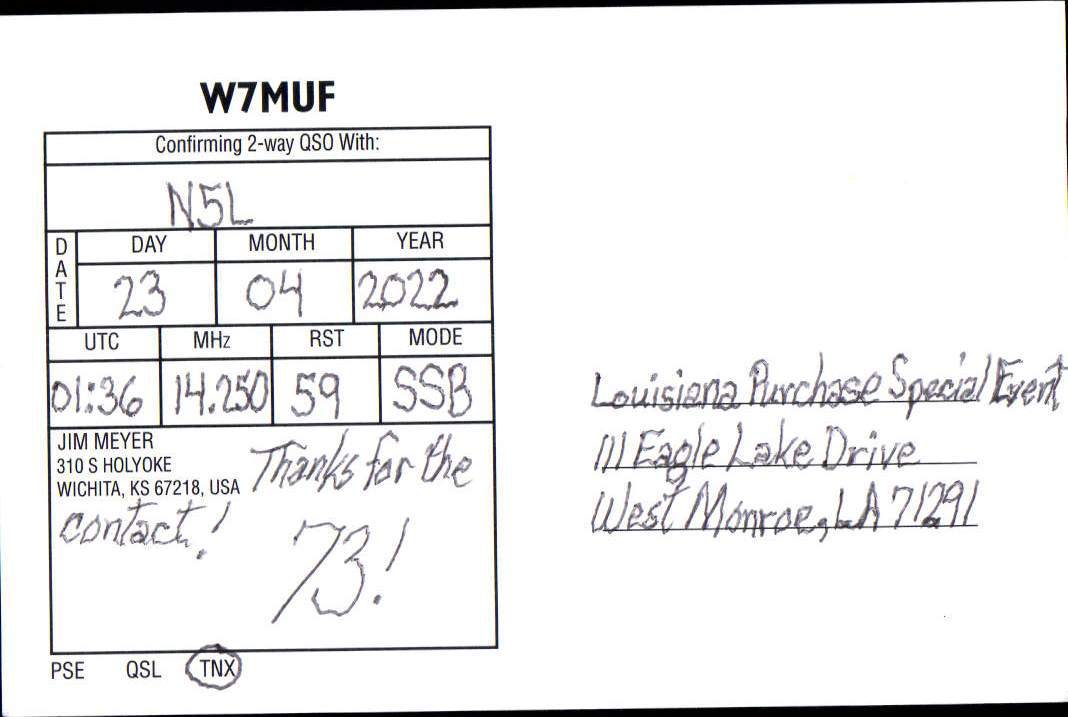 W7MUF
Confirming 2-way QSO With:
N5L
DATE
DAY MONTH YEAR
23 04 2022
UTC MHz RST MODE
01:36 14.250 59 SSB
JIM MEYER
310 S HOLYOKE
WICHITA, KS 67218, USA
Thanks for the
contact!
73!
PSE QSL TNX
Louisiana Purchase Special Event
111 Eagle Lake Drive
West Monroe, LA 71291